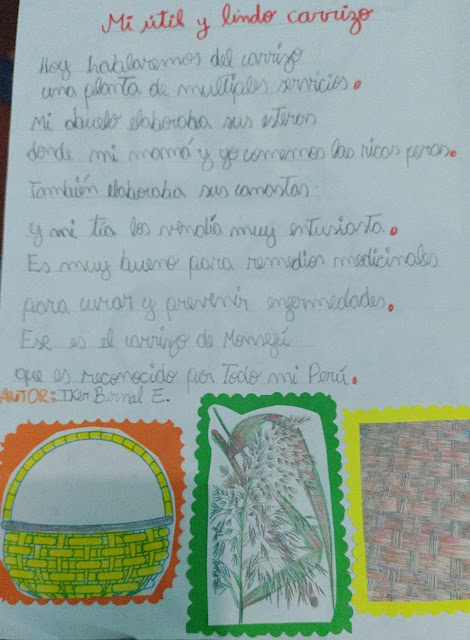 Mi útil y lindo carrizo
Hoy hablaremos del carrizo
una planta de multiples servicios.
Mi abuelo elaboraba sus esteras
donde mi mamá y yo comemos las ricas peras.
También elaboraba sus canastas
y mi tía los vendía muy entusiasta.
Es muy bueno para remedios medicinales
para curar y prevenir enfermedades.
Ese es el carrizo de Monsefú
que es reconocido por Todo mi Perú.
AUTOR: IKer Bernal E.